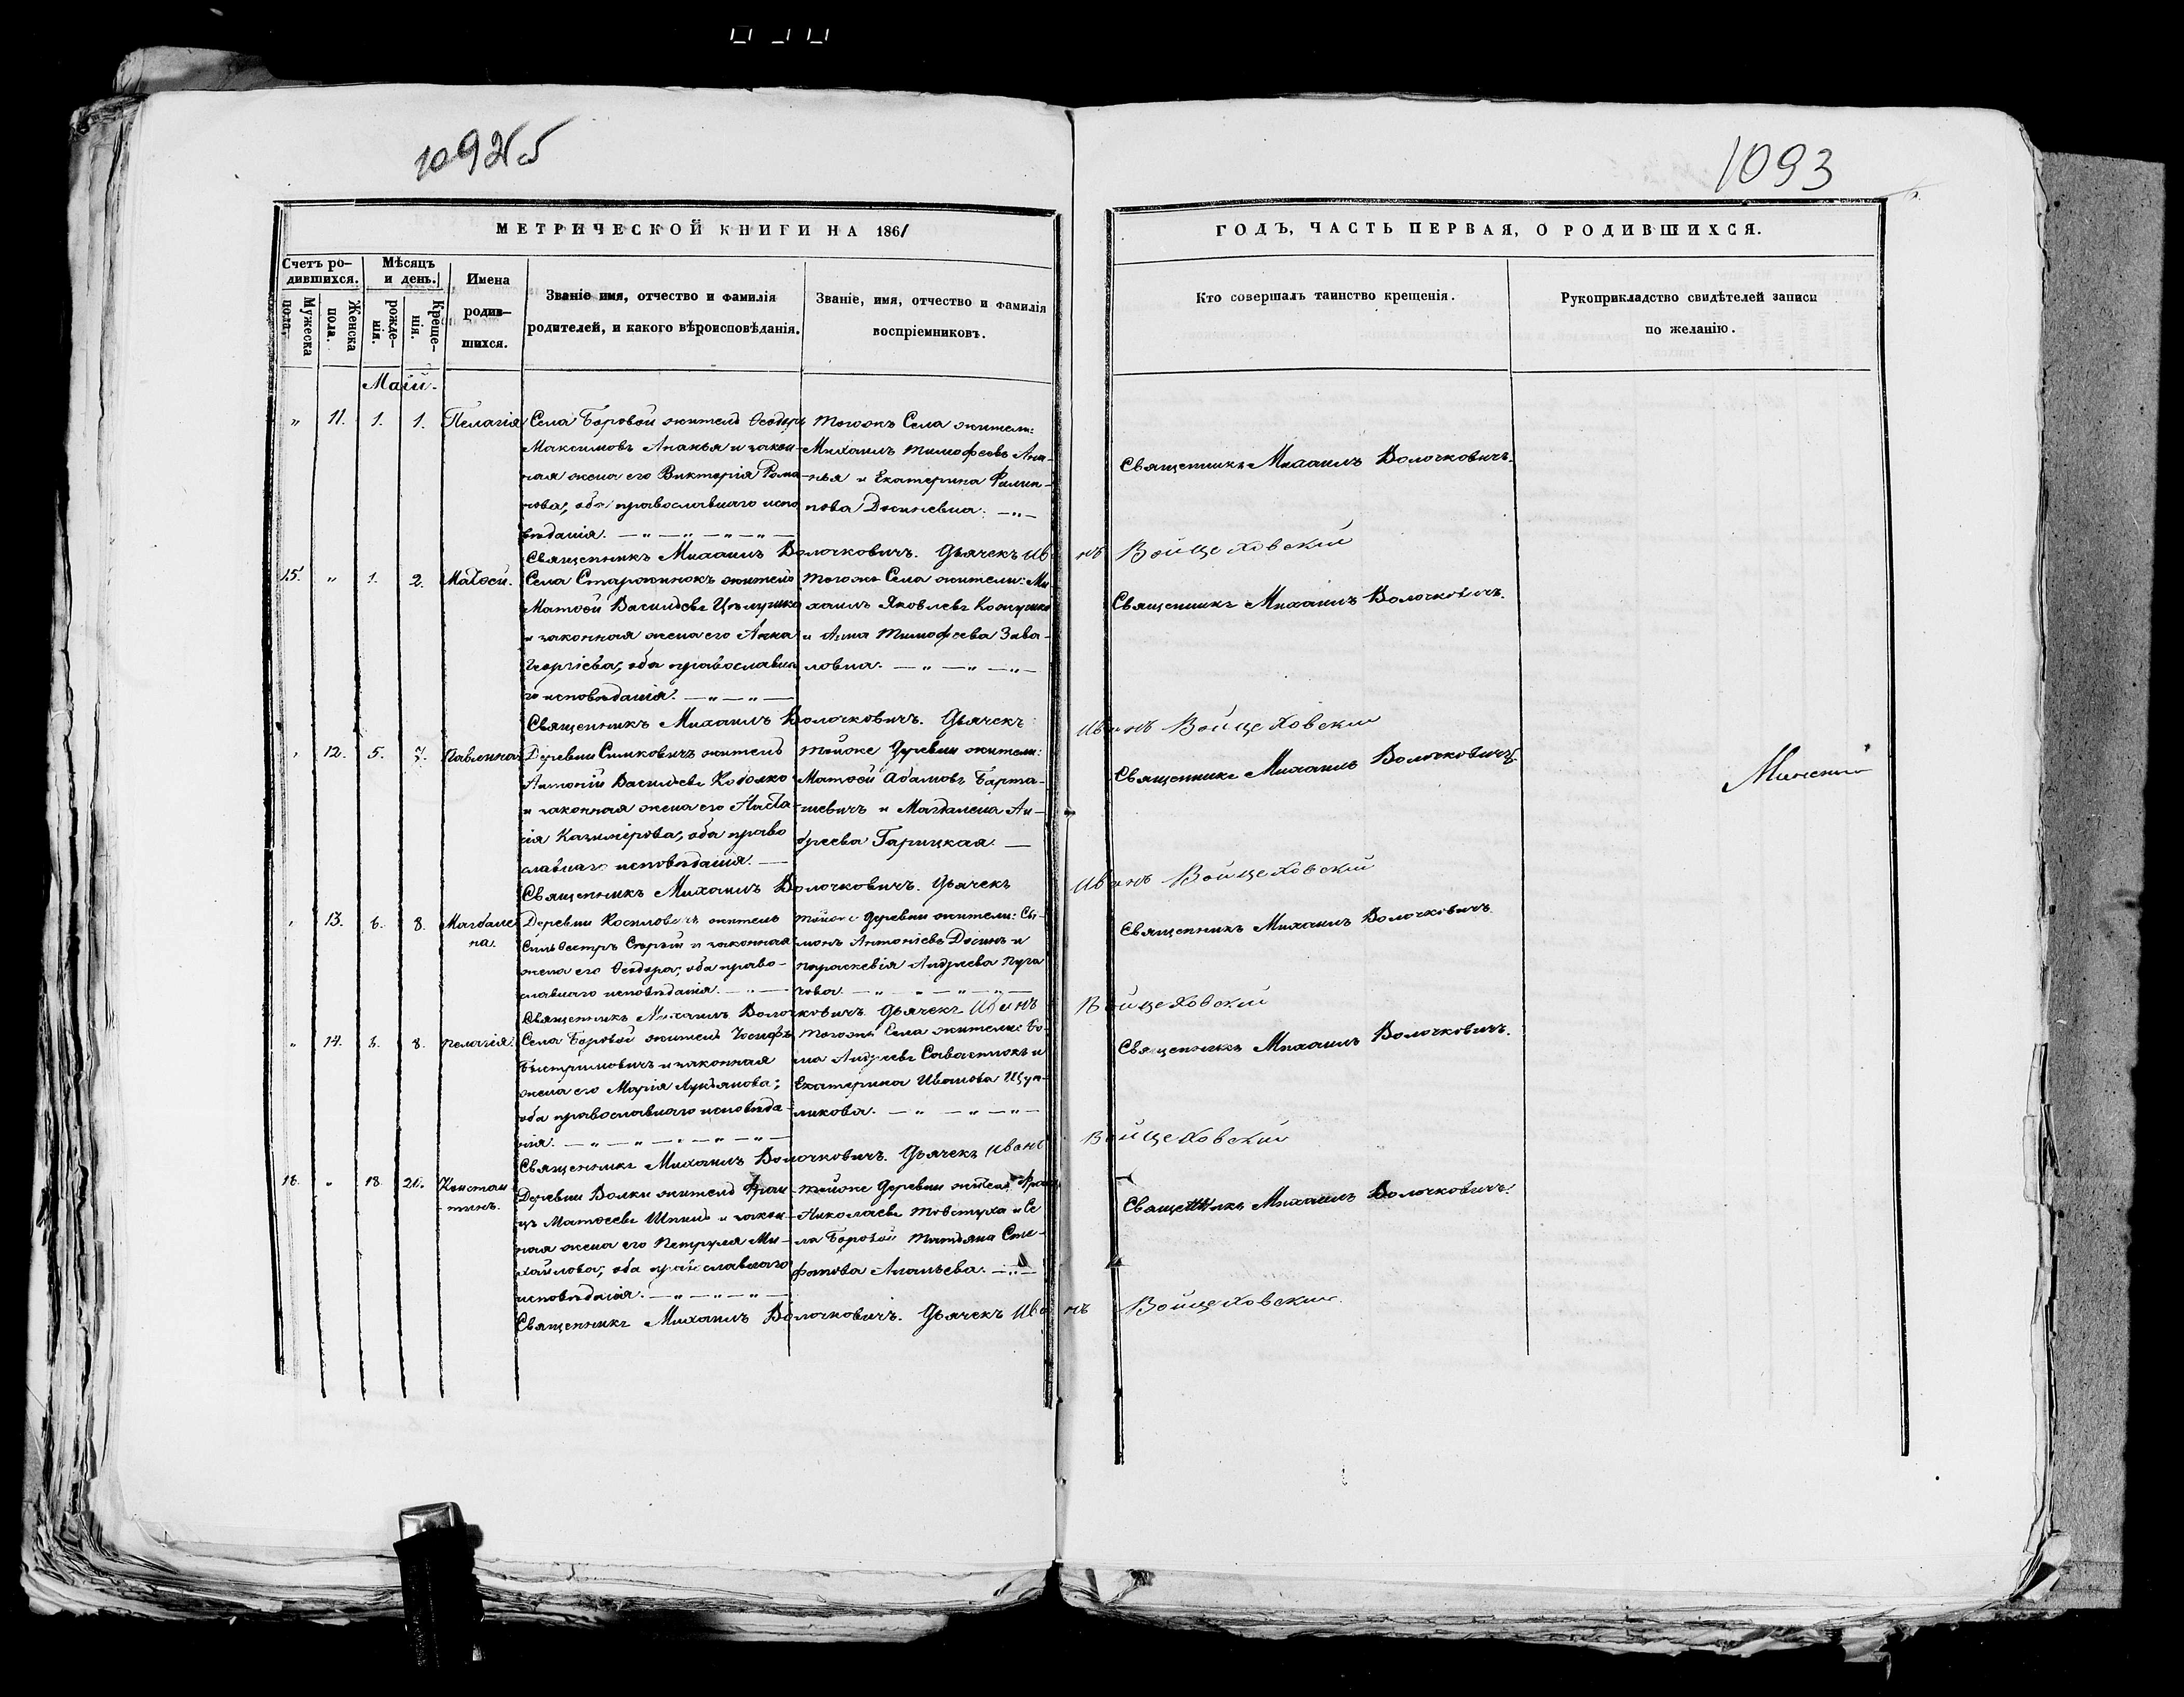 1092б
1093
МЕТРИЧЕСКОЙ КНИГИ НА 1861
ГОДЪ, ЧАСТЬ ПЕРВАЯ, О РОДИВШИХСЯ.
Счетъ ро-
дившихся.
Мужеска
пола.
Женска
пола.
Мѣсяцъ
и день.
рожде-
нія.
Креще-
нія.
Имена
родив-
шихся.
Званіе имя, отчество и фамилія
родителей, и какого вѣроисповѣданія.
Званіе, имя, отчество и фамилія
воспріемниковъ.
Кто совершалъ таинство крещенія.
Рукоприкладство свидѣтелей записи
по желанію.
Маій.
" 11. 1. 1. Пелагія
Села Боровой житель Ѳеодоръ
Максимовъ Ананья и закон-
ная жена его Викторія Рома-
нова, оба православнаго испо
вѣданія.
Тогожъ Села жители:
Михаилъ Тимофеевъ Ана-
нья и Екатерина Филип-
пова
Священникъ Михаилъ Волочковичъ.
Священникъ Михаилъ Волочковичъ. Дьячекъ Иванъ Войцеховскій
15. " 1. 2. Маѳѳей.
Села житель
Матѳей Васильевъ
и законная жена его Анна
Георгіева, оба православна
го исповѣданія.
Тогожъ Села жители: Ми
хаилъ Яковлевъ
и Анна Тимофеева Зава-
ловна.
Священникъ Михаилъ Волочковичъ.
Священникъ Михаилъ Волочковичъ. Дьячекъ Иванъ Войцеховскій
" 12. 5. 7. Павлина
Деревни Симковичъ житель
Антоній Васильевъ
и законная жена его Наста
сія Казимірова, оба право
славнаго исповѣданія.
Тойже Деревни жители:
Матѳей Адамовъ Барта-
шевичъ и Магдалена Ан-
дреева Гарицкая.
Священникъ Михаилъ Волочковичъ.
Священникъ Михаилъ Волочковичъ. Дьячекъ Иванъ Войцеховскій
" 13. 6. 8. Магдале
на.
Деревни житель
Сильвестръ и законная
жена его Ѳеодора, оба право-
славнаго исповѣданія.
Тойже Деревни жители: Си-
монъ Антоніевъ и
Параскевія Андреева Пуга
чова.
Священникъ Михаилъ Волочковичъ.
Священникъ Михаилъ Волочковичъ. Дьячекъ Иванъ Войцеховскій
" 14. 6. 8. Пелагія.
Села Боровой житель Іосифъ
Быстримовичъ и законная
жена его Марія Лукьянова;
оба православнаго исповѣда-
нія.
Тогожъ Села жители: Ѳо-
ма Андреевъ Савастюкъ и
Екатерина Иванова
Священникъ Михаилъ Волочковичъ.
Священникъ Михаилъ Волочковичъ. Дьячекъ Иванъ Войцеховскій
16. " 18. 21. Констан
тинъ.
Деревни Волки житель Фран-
цъ Матѳеевъ и закон-
ная жена его Петруля Ми-
хайлова; оба православнаго
исповѣданія.
Тойже Деревни житель
Николаевъ Товстуха и Се
ла Боровой Татьяна Сте-
фанова Ананьева.
Священникъ Михаилъ Волочковичъ.
Священникъ Михаилъ Волочковичъ. Дьячекъ Иванъ Войцеховскій